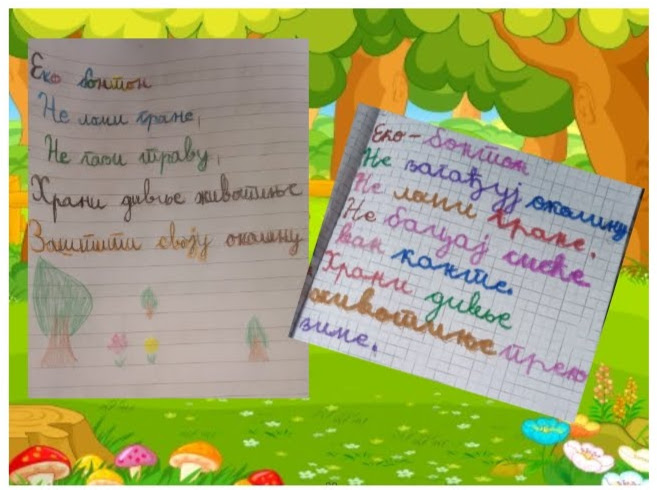 Еко бонтон
Не ломи гране,
Не гази траву,
Храни дивље животиње
Заштити своју околину
Еко-бонтон
Не загађуј околину
Не ломи гране.
Не бацај смеће
ван канте.
Храни дивље
животиње преко
зиме.